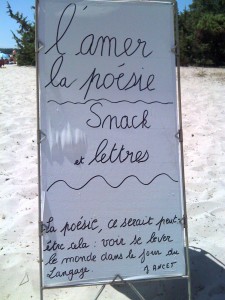 l'amer
la poésie
Snack
et lettres
La poésie, ce serait peut-
être cela : voir se lever
le monde dans le jour du
Langage.
J. ANCET